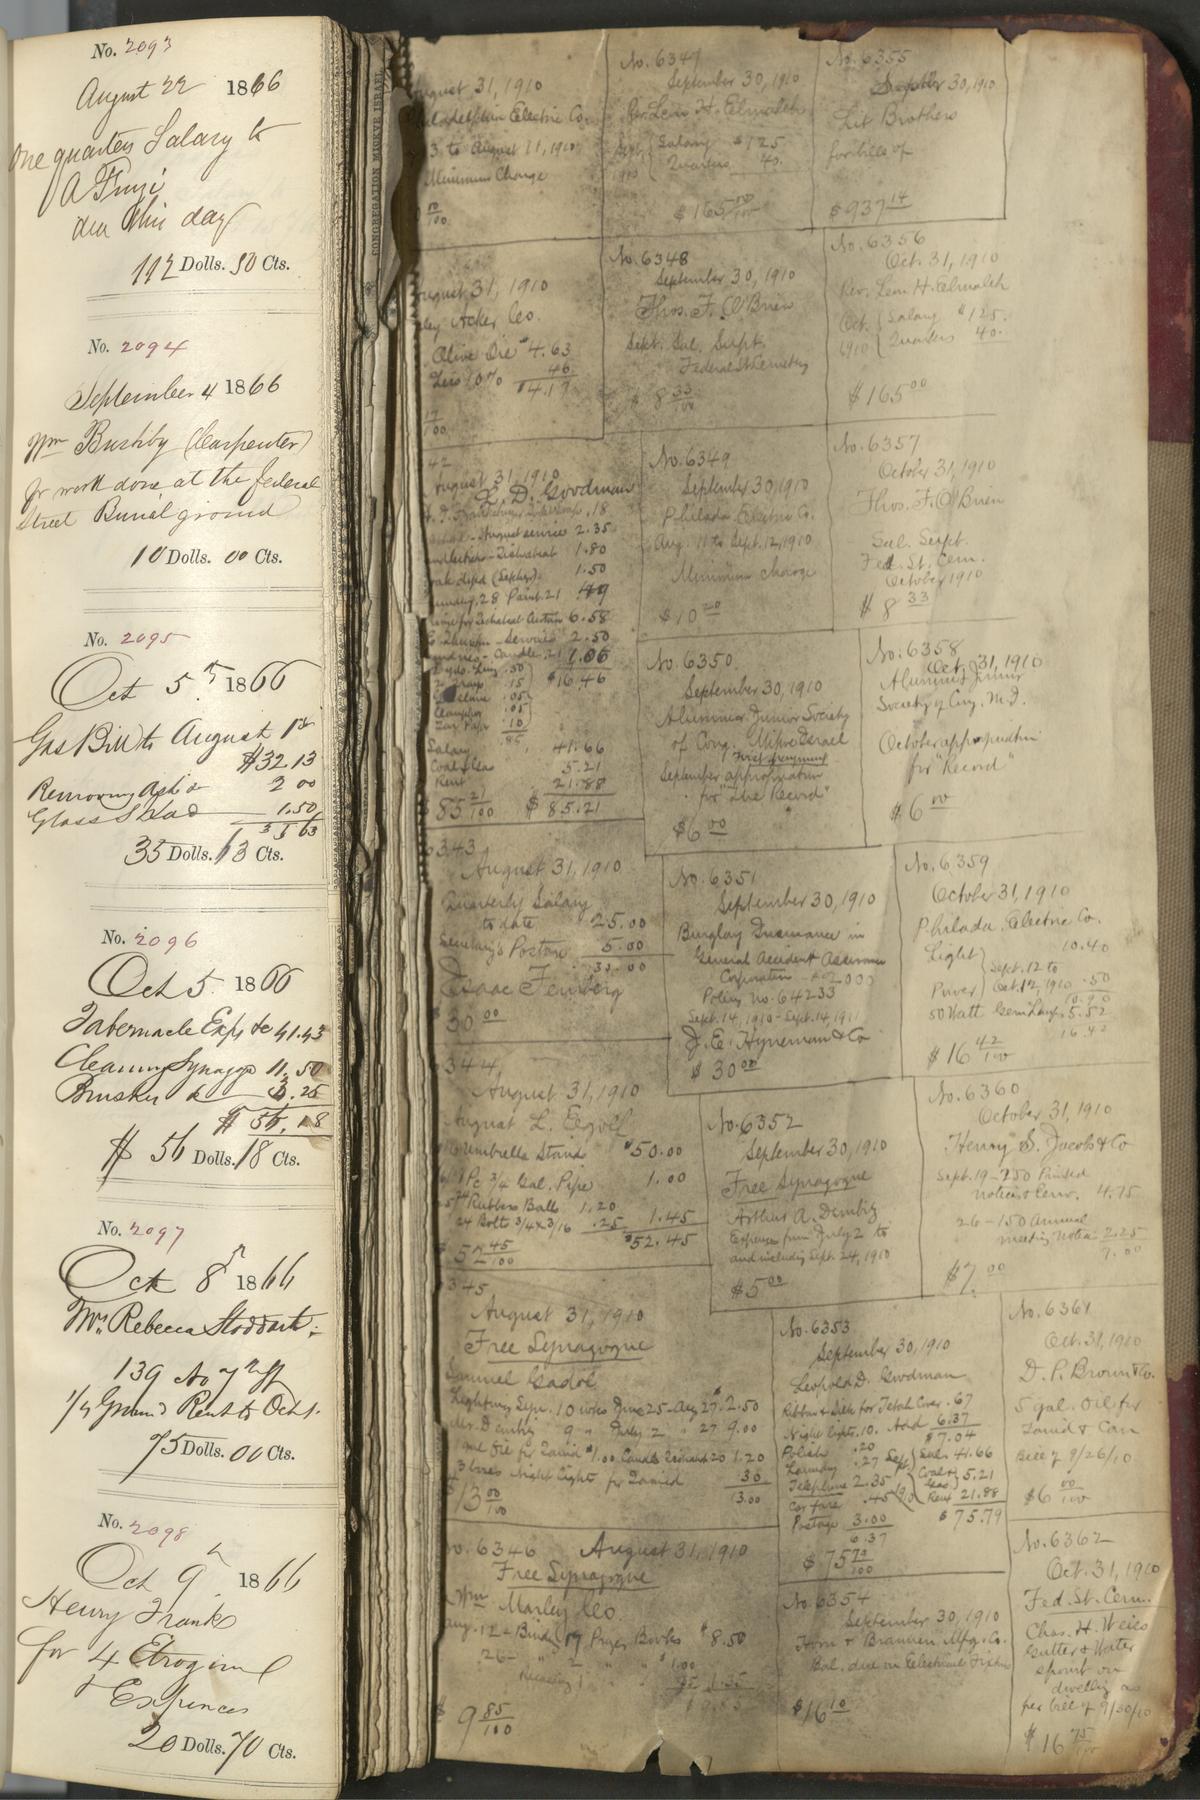 No. 2093
August 22 1866
One quarters Salary to
A Finzi
due this day
112 Dolls. 50 Cts.
No. 2094
September 4 1866
Wm Bushby (Carpenter)
for work done at the federal
Street Burial ground
10 Dolls. 00 Cts.
No. 2095
Oct 5th 1866
Gas Bill to August 1st
$32 13
Removing Ashes 2 00
Glass Shad 1.50
35 63
35 Dolls. 63 Cts.
No. 2096
Oct 5 1866
Tabernacle Exps &c 41.43
Cleaning Synagog 11.50
Brushes & 3.25
$ 56.18
$ 56 Dolls. 18 Cts.
No. 2097
Oct 8th 1866
Mrs Rebecca Stoddart
139 No 7th St
1/4 Ground Rent to Oct 1.
75 Dolls. 00 Cts.
No. 2098
Oct 9th 1866
Henry Franks
for 4 Etrogim
& Expences
20 Dolls. 70 Cts.
CONGREGATION MICKVE ISRAEL
August 31, 1910
Philadelphia Electric Co.
3 to August 11, 1910
Minimum Charge
August 31, 1910
Acker Co.
Olive Oil $4.63
Less 10% 46
$4.17
August 31, 1910
L. D. Goodman
August service 2.35
1.80
1.50
6.58
Service 2.50
Candle
$16.46
Salary 41.66
Coal & Gas 5.21
Rent 21.88
$85 21/100 $85.21
6343
August 31, 1910
Quarterly Salary
to date 25.00
Secretary's Postage 5.00
30.00
Isaac Feinberg
30 00
6344
August 31, 1910
August L.
Umbrella Stand $50.00
1 Pc 3/4 Gal. Pipe 1.00
Rubber Balls 1.20
24 Bolts 3/4 x 3/16 .25 1.45
$52.45
$52 45/100
6345
August 31, 1910
Free Synagogue
Samuel Gadol
Lighting Syn. 10 wks June 25-Aug 27. $2.50
A. Dembitz 9 " July 2 " 27 9.00
gal Oil for Tamid $1.00 Candles .20 1.20
3 boxes Night Lights for Tamid 30
13.00
$13 00
No. 6346 August 31, 1910
Free Synagogue
Wm Marley Co
Aug. 12 - Binding 17 Prayer Books $8.50
$9 85/100
No. 6347
September 30, 1910
Rev. Leon H. Elmaleh
Sept. 1910 Salary $125
Quarters 40.
$165 00/100
No. 6348
September 30, 1910
Thos. F. O'Brien
Sept. Sal. Supt.
Federal St Cemetery
$ 8 33/100
No. 6349
September 30, 1910
Philada Electric Co.
Aug. 11 to Sept. 12, 1910
Minimum charge
$10 20
No. 6350
September 30, 1910
Alumni Junior Society
of Cong. Mikve Israel
First payment
September appropriation
for "The Record"
$6 00
No. 6351
September 30, 1910
Burglary Insurance in
General Accident Assurance
Corporation - $2000
Policy no. 64233
Sept. 14, 1910 - Sept. 14, 1911
J. E. Hyneman & Co
$ 30 00
No. 6352
September 30, 1910
Free Synagogue
Arthur A. Dembitz
Expenses from July 2 to
and including Sept. 24, 1910
$5 00
No. 6353
September 30, 1910
Leopold D. Goodman
Ribbon & Silk for Tebah Cover .67
Night Lights .10. Add 6.37
$7.04
Polish .20
Laundry .27 Sept 1910 Sal. 41.66
Telephone 2.35 Coal & Gas 5.21
Car fare .45 Rent 21.88
Postage 3.00 $75.79
6.37
$ 75 79/100
No. 6354
September 30, 1910
Horn & Brannen Mfg. Co.
Bal. due on Electrical Fixtures
$16 10
No. 6355
September 30, 1910
Lit Brothers
for bills of
$937 14
No. 6356
Oct. 31, 1910
Rev. Leon H. Elmaleh
Oct. 1910 Salary $125.
Quarters 40.
$165 00
No. 6357
October 31, 1910
Thos. F. O'Brien
Sal. Supt.
Fed. St. Cem.
October 1910
$ 8 33
No. 6358
Oct. 31, 1910
Alumni Junior
Society of Cong. M. I.
October appropriation
for "Record"
$6 00
No. 6359
October 31, 1910
Philada. Electric Co.
Light 10.40
Sept. 12 to
Power Oct. 12, 1910 .50
10.90
50 Watt Gem Lamps 5.52
16.42
$ 16 42/100
No. 6360
October 31, 1910
Henry S. Jacobs & Co
Sept. 19 - 250 Printed
notices & Env. 4.75
26 - 150 Annual
meeting notices 2.25
7.00
$7. 00
No. 6361
Oct. 31, 1910
D. P. Brown & Co.
5 gal. Oil for
Tamid & Can
Bill of 9/26/10
$6 00/100
No. 6362
Oct. 31, 1910
Fed. St. Cem.
Chas. H. Weiss
Gutter & Water
spout on
dwelling as
per bill of 9/30/10
$ 16 75/100